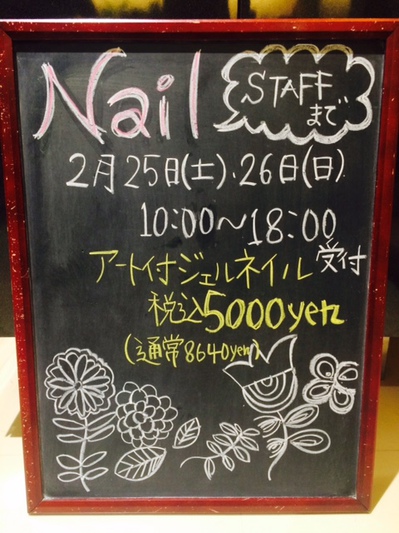 Nail
STAFF
まで
2月25日(土)・26日(日)
10:00~18:00
受付
アート付ジェルネイル
税込5000yen
(通常8640yen)